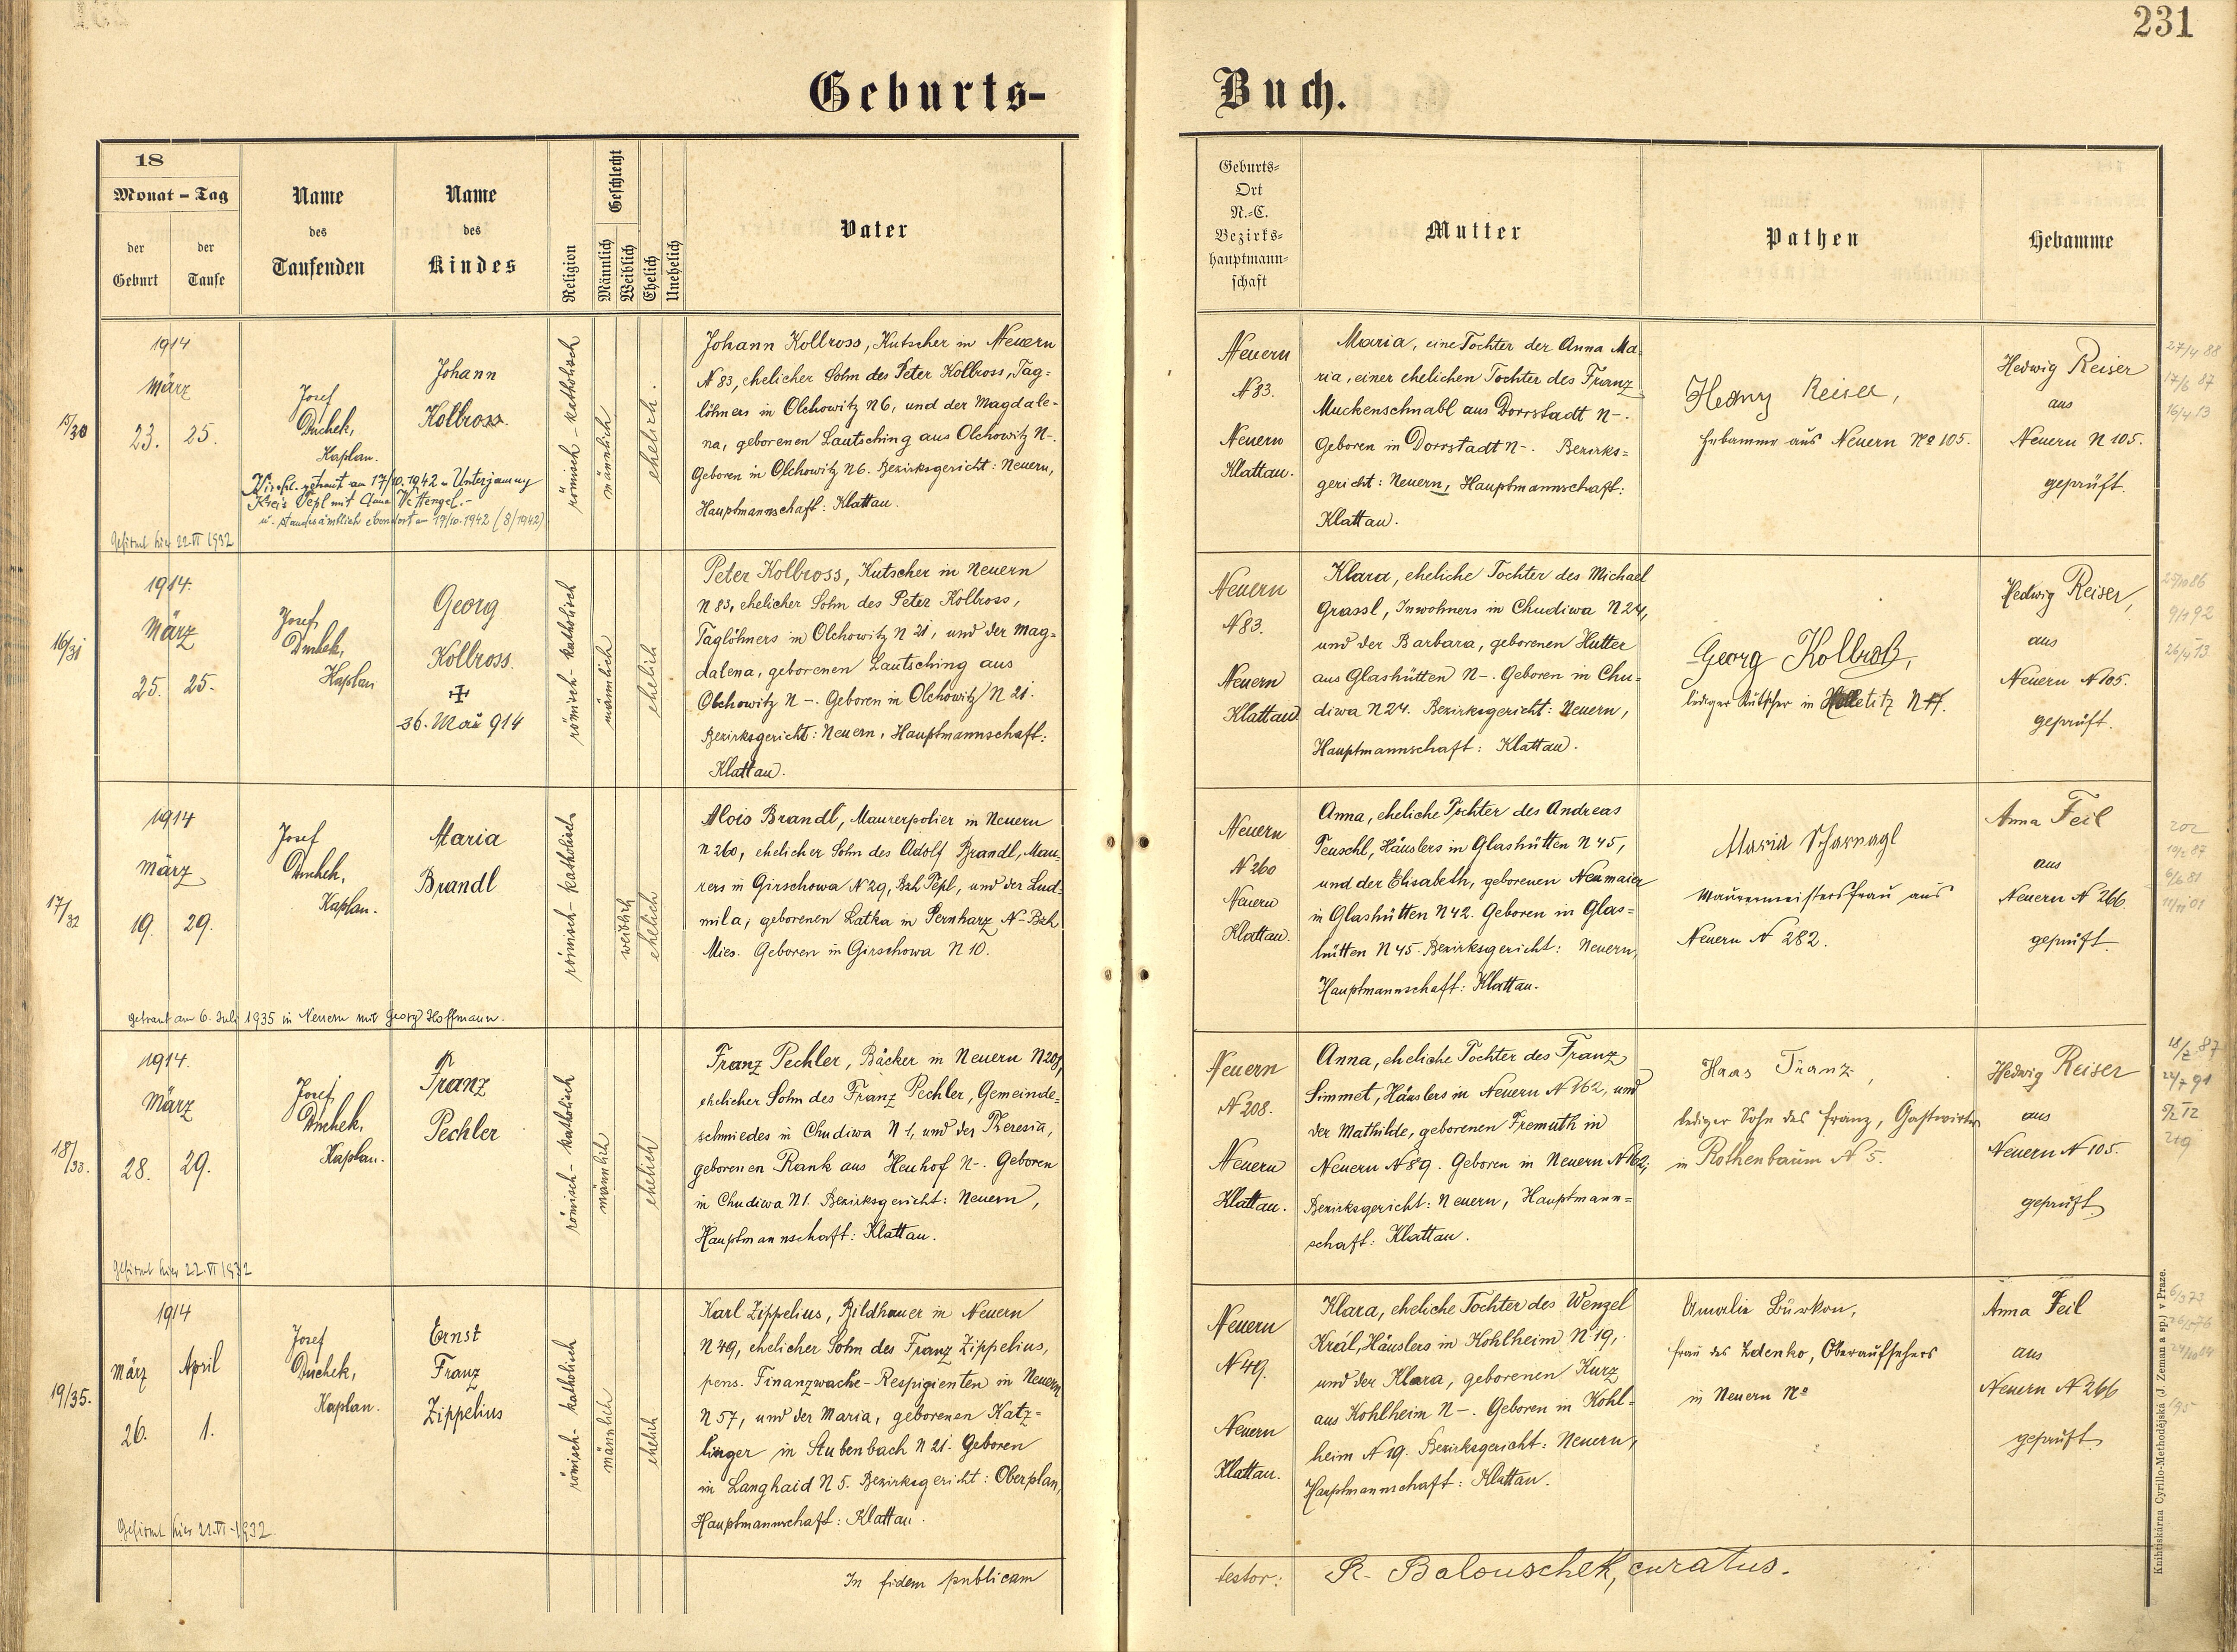 231
Geburts-
Buch.
18
Monat - Tag
der Geburt
der Taufe
Name des Taufenden
Name des Kindes
Religion
Geschlecht
Männlich
Weiblich
Ehelich
Unehelich
Vater
Geburts-
Ort
N.-C.
Bezirks-
hauptmann-
schaft
Mutter
Pathen
Hebamme
15/30
1914
März
23. 25.
Josef
Duchek,
Kaplan.
getraut am 17/10.1942 Unterjamny
Kreis Tepl mit
u. standesamtlich ebendort am 17/10.1942 (8/1942)
Gefirmt hier 22.VI 1932
Johann
Kollross
römisch-katholisch
männlich
ehelich.
Johann Kollross, Kutscher in Neuern
N 83, ehelicher Sohn des Peter Kollross, Tag=
löhners in Olchowitz N 6, und der Magdale-
na, geborenen Lautsching aus Olchowitz N-.
Geboren in Olchowitz N 6. Bezirksgericht: Neuern,
Hauptmannschaft: Klattau.
Neuern
N 83.
Neuern
Klattau.
Maria, eine Tochter der Anna Ma-
ria, einer ehelichen Tochter des Franz
Muckenschnabl aus Dorrstadt N-.
Geboren in Dorrstadt N-. Bezirks=
gericht: Neuern, Hauptmannschaft:
Klattau.
Reiser,
Hebamme aus Neuern No 105.
Hedwig Reiser
aus
Neuern N 105.
geprüft.
27/4 88
16/4 13
16/31
1914.
März
25. 25.
Josef
Duchek,
Kaplan
Georg
Kollross.
26. Mai 914
römisch-katholisch
männlich
ehelich
Peter Kollross, Kutscher in Neuern
N 83, ehelicher Sohn des Peter Kollross,
Taglöhners in Olchowitz N 21, und der Mag=
dalena, geborenen Lautsching aus
Olchowitz N -. Geboren in Olchowitz N 21.
Bezirksgericht: Neuern, Hauptmannschaft:
Klattau.
Neuern
N 83.
Neuern
Klattau
Klara, eheliche Tochter des Michael
Grassl, Inwohners in Chudiwa N 24,
und der Barbara, geborenen Hutter
aus Glashütten N-. Geboren in Chu-
diwa N 24. Bezirksgericht: Neuern,
Hauptmannschaft: Klattau.
Georg Kollroß,
lediger Kutscher in
Hedwig Reiser,
aus
Neuern N 105.
geprüft.
26/4 13
17/32
1914
März
19. 29.
Josef
Duchek,
Kaplan.
getraut am 6. Juli 1935 in Neuern mit Georg Hoffmann.
Maria
Brandl
römisch-katholisch
weiblich
ehelich
Alois Brandl, Maurerpolier in Neuern
N 260, ehelicher Sohn des Adolf Brandl, Mau-
rers in Girschowa N 29, Bzh Tepl, und der Lud-
mila, geborenen Latka in Pernharz N- Bzh
Mies. Geboren in Girschowa N 10.
Neuern
N 260
Neuern
Klattau.
Anna, eheliche Tochter des Andreas
Peuschl, Häuslers in Glashütten N 45,
und der Elisabeth, geborenen Neumaier
in Glashütten N 42. Geboren in Glas=
hütten N 45. Bezirksgericht: Neuern,
Hauptmannschaft: Klattau.
Maria Scharnagl
Maurermeistersfrau aus
Neuern N 282.
Anna Feil
aus
Neuern N 266.
geprüft.
202
18/33.
1914.
März
28. 29.
Josef
Duchek,
Kaplan.
Gefirmt hier 22.VI 1932
Franz
Pechler
römisch-katholisch
männlich
ehelich
Franz Pechler, Bäcker in Neuern N 208,
ehelicher Sohn des Franz Pechler, Gemeinde=
schmiedes in Chudiwa N 1, und der Theresia,
geborenen Rank aus Heuhof N-. Geboren
in Chudiwa N 1. Bezirksgericht: Neuern,
Hauptmannschaft: Klattau.
Neuern
N 208.
Neuern
Klattau.
Anna, eheliche Tochter des Franz
Simmet, Häuslers in Neuern N 162, und
der Mathilde, geborenen Fremuth in
Neuern N 89. Geboren in Neuern N 162,
Bezirksgericht: Neuern, Hauptmann=
schaft: Klattau.
Haas Franz,
lediger Sohn des Franz, Gastwirtes
in Rothenbaum N 5.
Hedwig Reiser
aus
Neuern N 105.
geprüft
219
19/35.
1914
März April
26. 1.
Josef
Duchek,
Kaplan.
Gefirmt hier 22.VI.1932.
Ernst
Franz
Zippelius
römisch-katholisch
männlich
ehelich
Karl Zippelius, Bildhauer in Neuern
N 49, ehelicher Sohn des Franz Zippelius,
pens. Finanzwache-Respizienten in Neuern
N 57, und der Maria, geborenen Katz=
linger in Stubenbach N 21. Geboren
in Langhaid N 5. Bezirksgericht: Oberplan,
Hauptmannschaft: Klattau.
Neuern
N 49.
Neuern
Klattau.
Klara, eheliche Tochter des Wenzel
Král, Häuslers in Kohlheim N 19,
und der Klara, geborenen Kurz
aus Kohlheim N-. Geboren in Kohl=
heim N 19. Bezirksgericht: Neuern,
Hauptmannschaft: Klattau.
Amalie Burkon,
Frau des Zdenko, Oberaufsehers
in Neuern No
Anna Feil
aus
Neuern N 266
geprüft
In fidem publicam
testor: R. Balouschek, curatus.
Knihtiskárna Cyrillo-Methodějská (J. Zeman a sp.) v Praze.